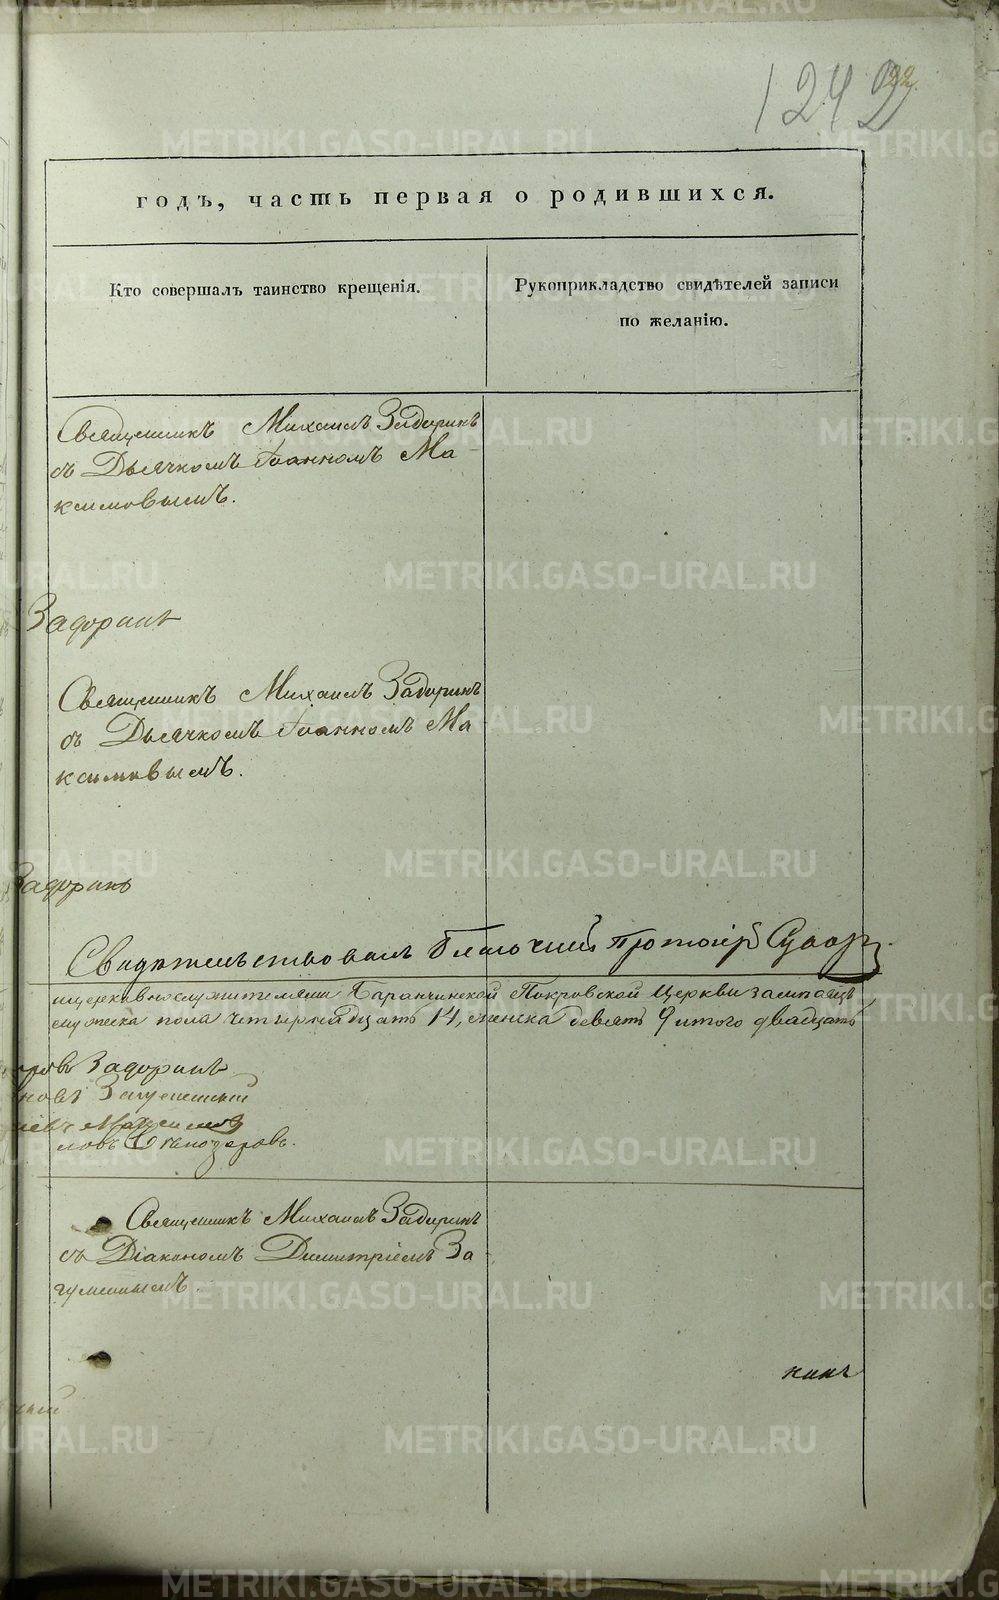 1242
22.
годъ, часть первая о родившихся.
Кто совершалъ таинство крещенія.
Рукоприкладство свидѣтелей записи
по желанію.
Священникъ Михаилъ Задоринъ
съ Дьячкомъ Іоанномъ Ма-
ксимовымъ.
Задоринъ
Священникъ Михаилъ Задоринъ
съ Дьячкомъ Іоанномъ Ма
ксимовымъ.
Задоринъ
Свидѣтельствовалъ Благочинный Протоіерей
ицерковнослужителями Баранчинской Покровской Церкви
мужеска пола четырнадцать 14, женска девять 9 итого двадцать
Задоринъ
новъ Загуменный
Максимовъ
ловъ Стахозеровъ.
Священникъ Михаилъ Задоринъ
съ Діакономъ Димитріемъ За
гуменнымъ.
ный
METRIKI.GASO-URAL.RU